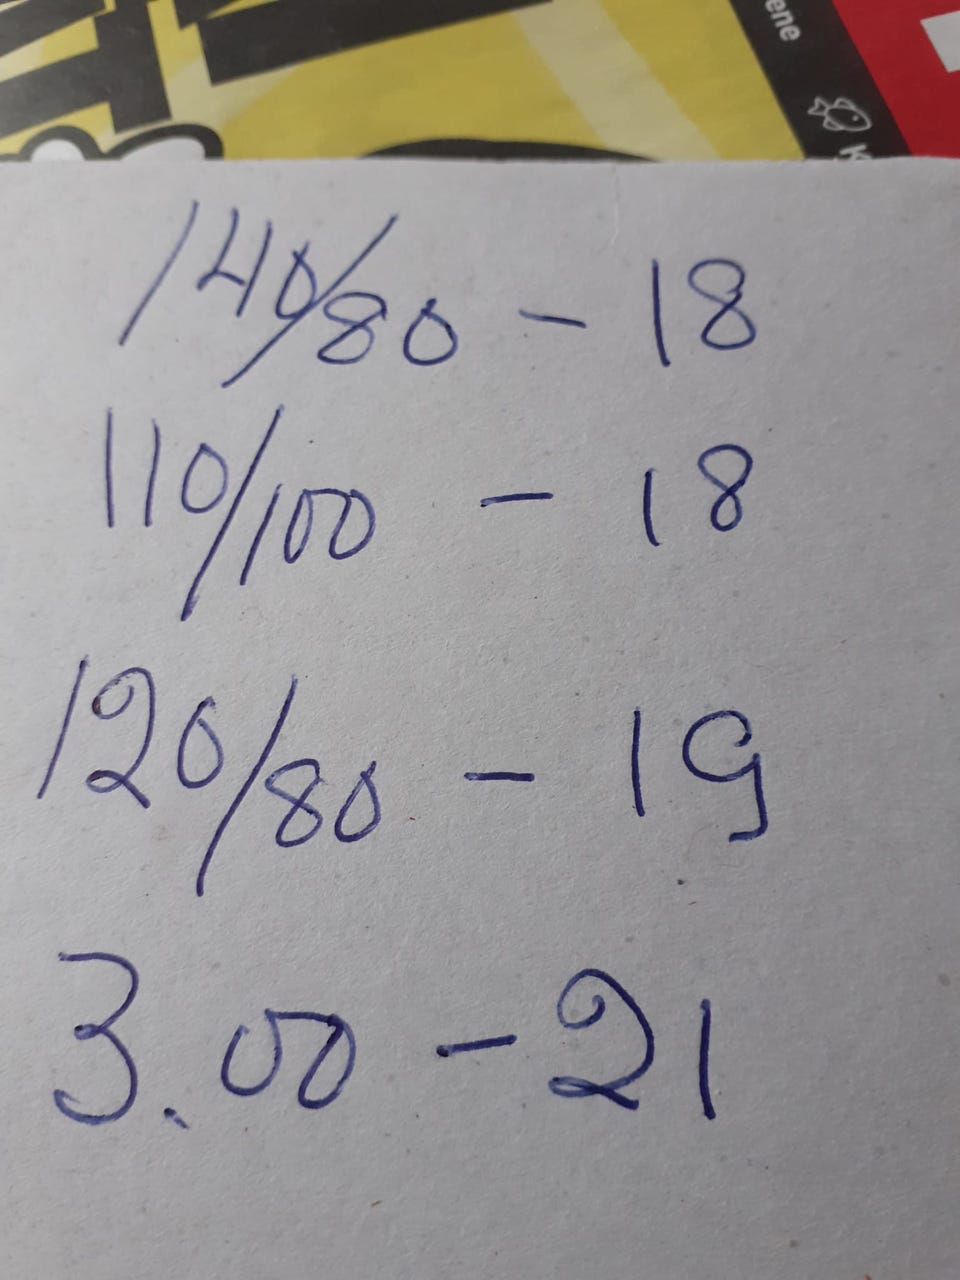 ene
140/80 - 18
110/100 - 18
120/80 - 19
3.00 - 21